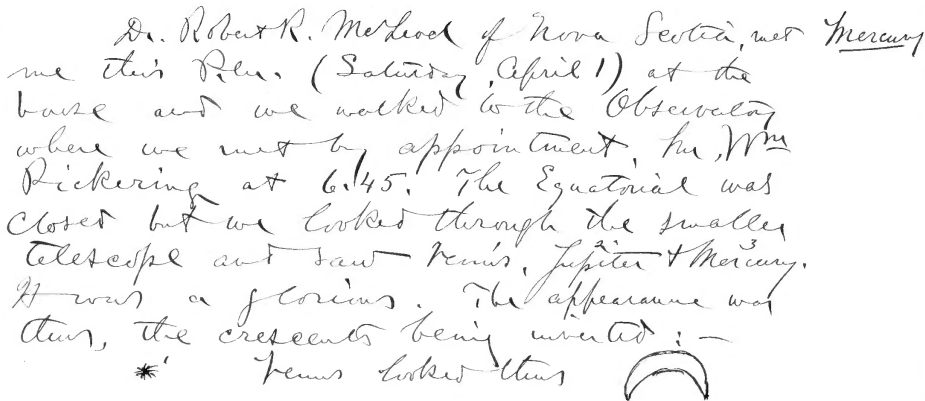 Dr. Robert R. McLeod of Nova Scotia, met Mercury
me this P.M. (Saturday, April 1) at the
house and we walked to the Observatory
where we met by appointment, Mr. Wm
Pickering at 6.45. The Equatorial was
closed but we looked through the smaller
telescope and saw Venus, Jupiter2 & Mercury3.
It was a glorious. The appearance was
thus, the crescents being inverted: —
*1 Venus looked thus